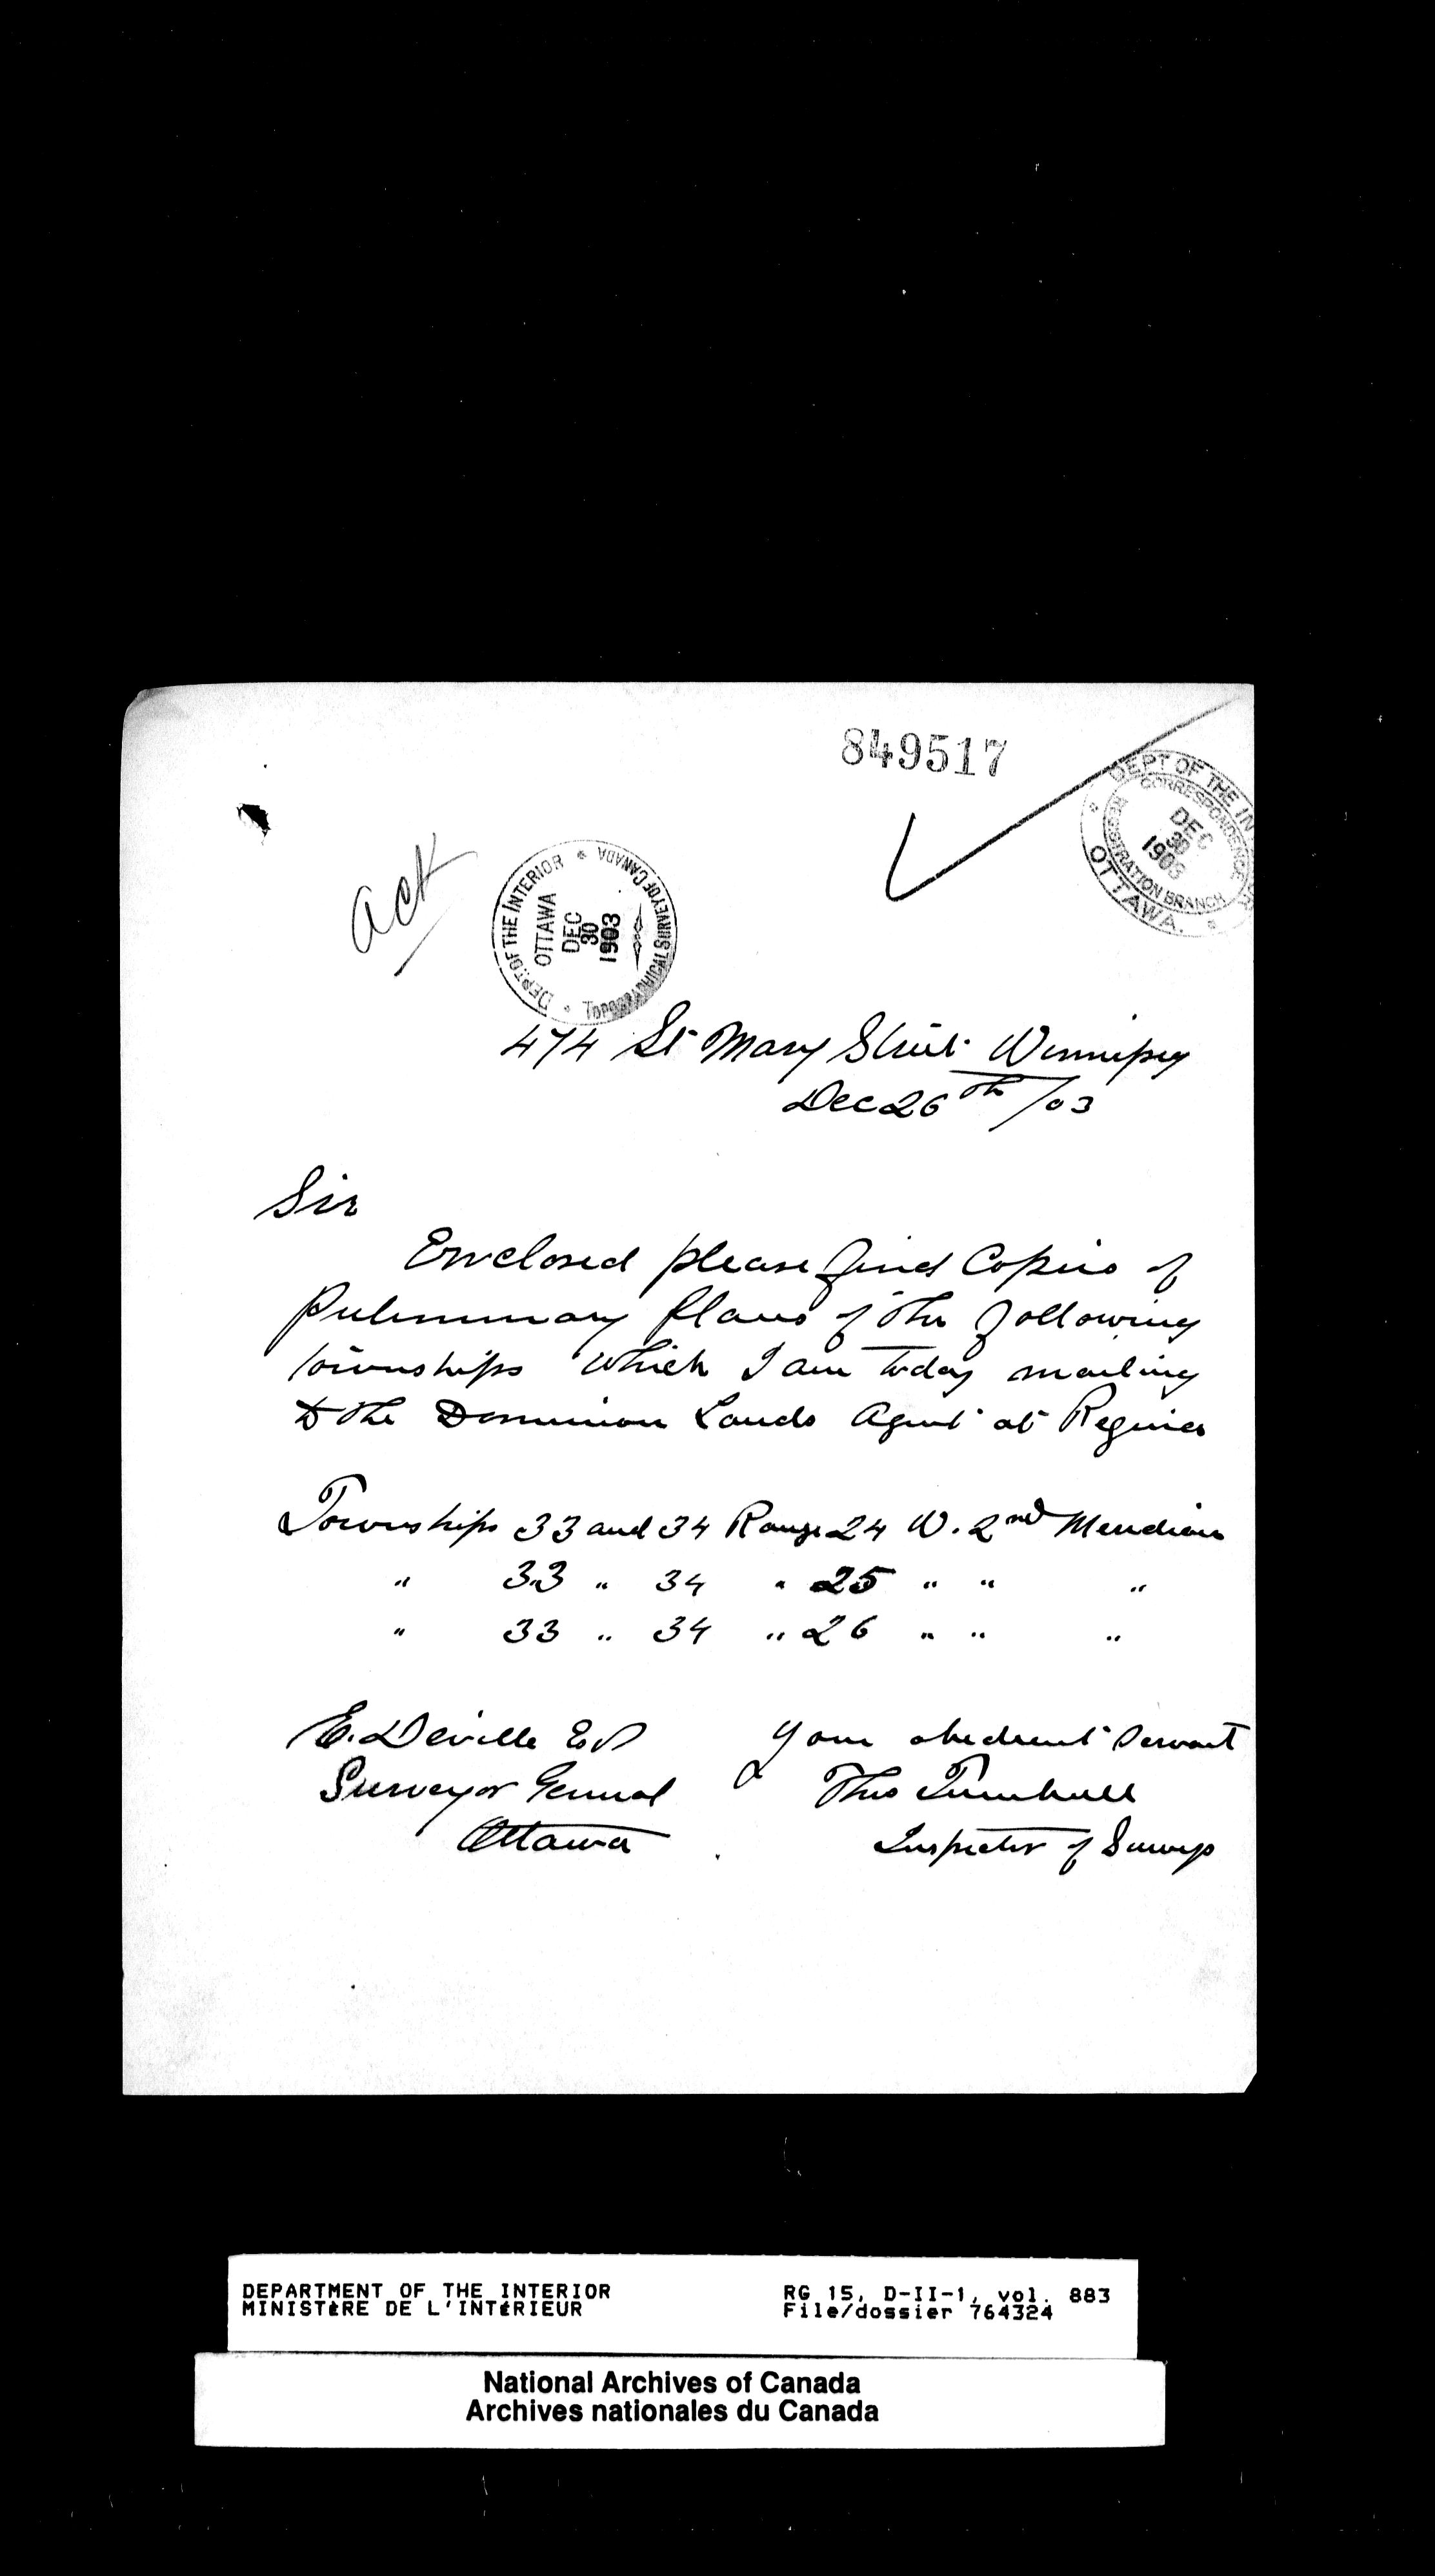 849517
DEPT OF THE IN
CORRESPONDENCE
DEC
30
1903
REGISTRATION BRANCH
OTTAWA.
ack
DEPT. OF THE INTERIOR
OTTAWA
DEC
30
1903
TOPOGRAPHICAL SURVEY OF CANADA
474 St Mary Street Winnipeg
Dec 26th /03
Sir
Enclosed please find Copies of
Preliminary plans of the following
townships which I am today mailing
to the Dominion Lands Agent at Regina
Townships 33 and 34 Range 24 W. 2nd Meridian
" 33 " 34 " 25 " " "
" 33 " 34 " 26 " " "
E. Deville Esq Your obedient Servant
Surveyor General Thos Turnbull
Ottawa Inspector of Surveys
DEPARTMENT OF THE INTERIOR RG 15, D-II-1, vol. 883
MINISTÈRE DE L'INTÉRIEUR File/dossier 764324
National Archives of Canada
Archives nationales du Canada